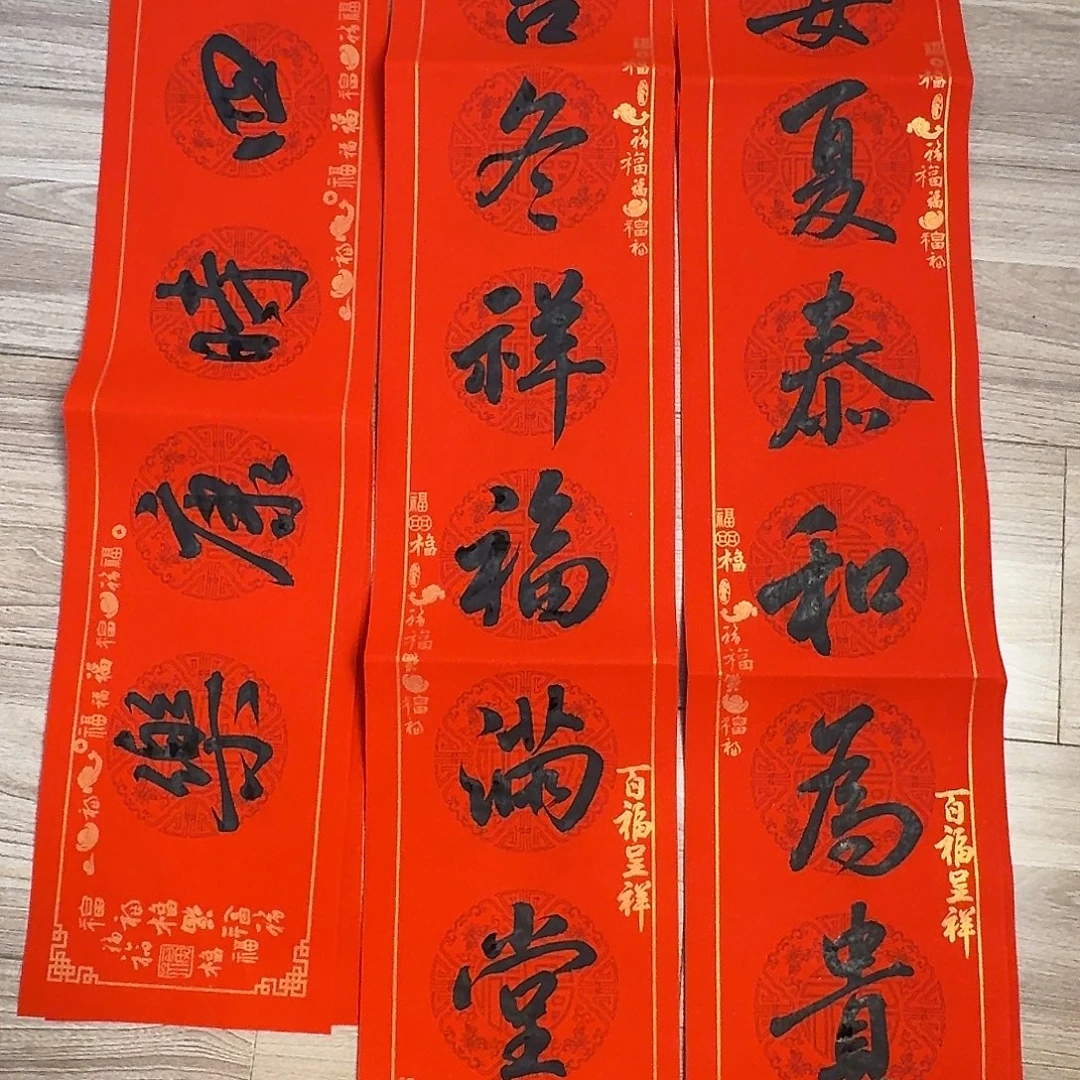 安夏泰和為貴
百福呈祥
吉冬祥福满堂
百福呈祥
四時康樂